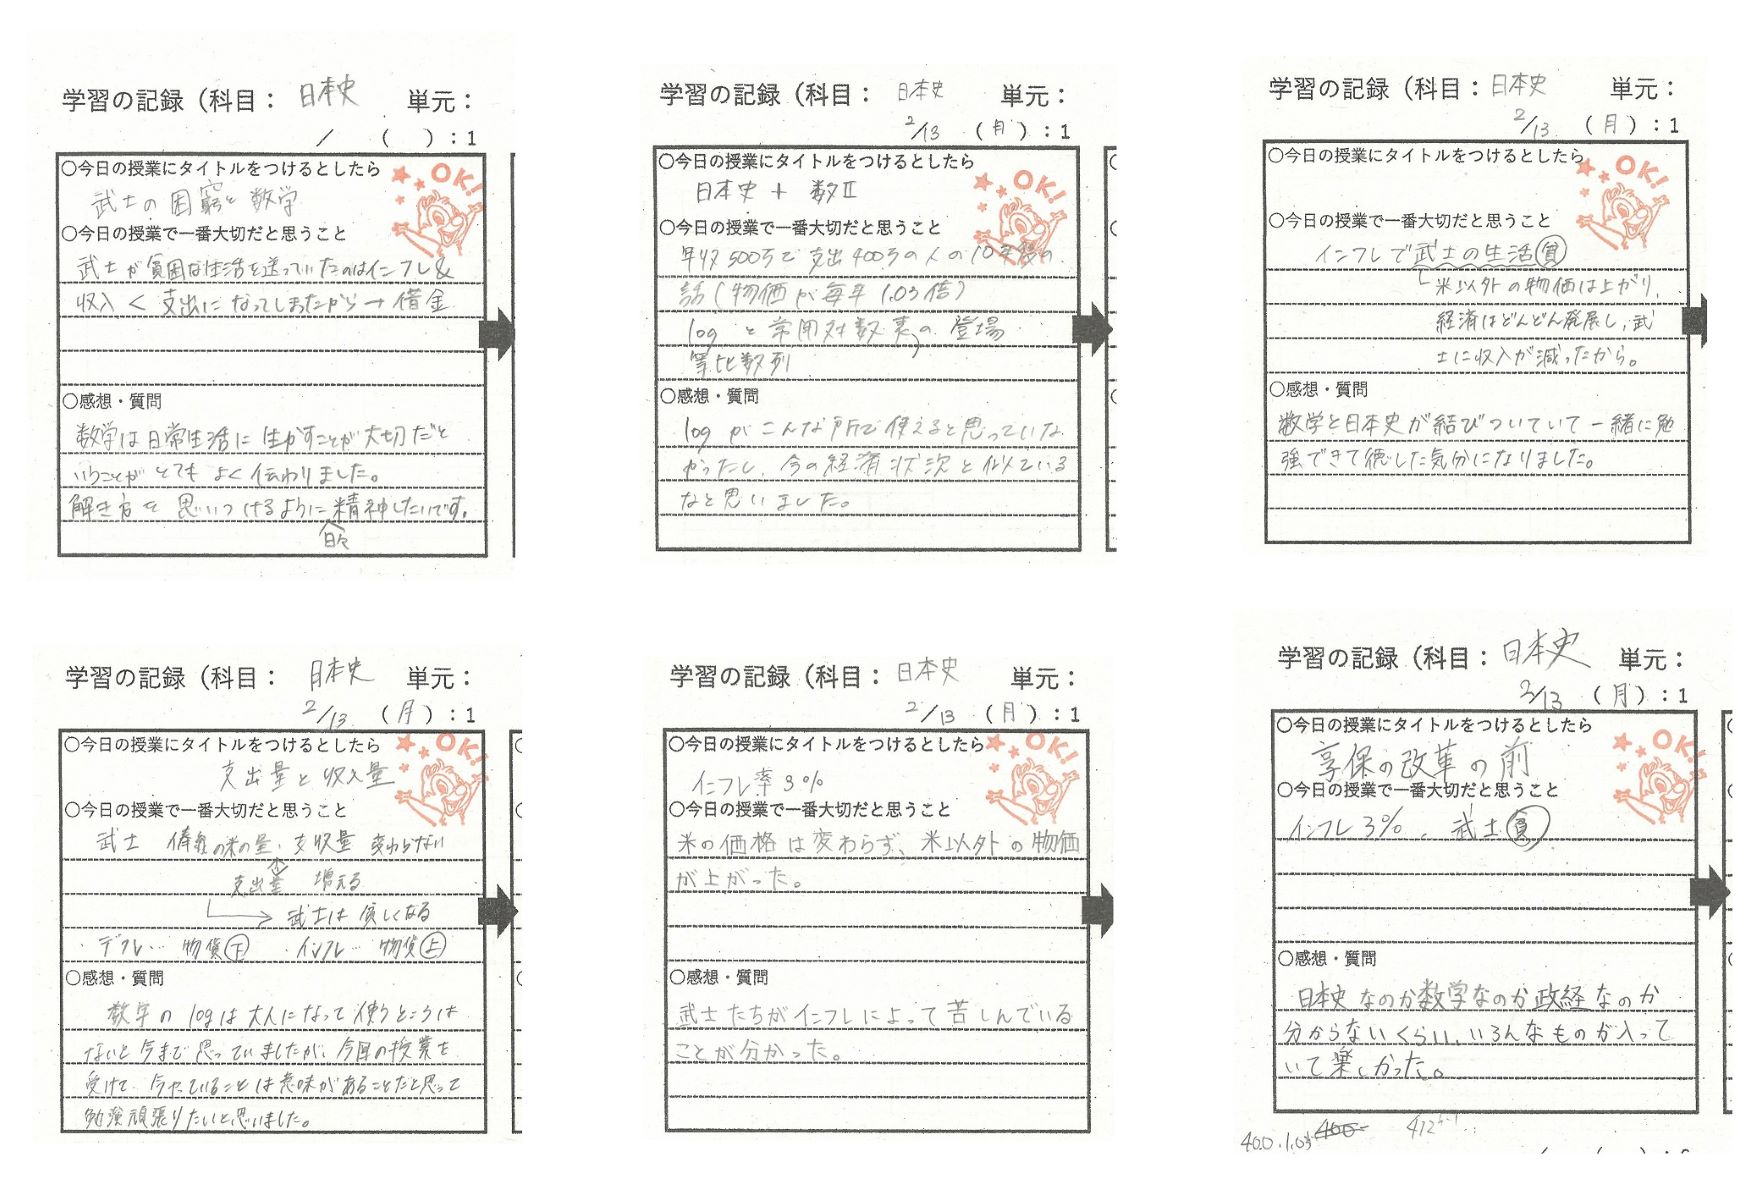 学習の記録（科目： 日本史 単元：
／ （ ）：1
○今日の授業にタイトルをつけるとしたら
武士の困窮と数学
○今日の授業で一番大切だと思うこと
武士が貧困な生活を送っていたのはインフレ&
収入 < 支出になってしまったから → 借金
○感想・質問
数学は日常生活に生かすことが大切だと
いうことがとてもよく伝わりました。
解き方を思いつけるように精神したいです。
日々
OK!
学習の記録（科目： 日本史 単元：
2/13 （月）：1
○今日の授業にタイトルをつけるとしたら
日本史 ＋ 数Ⅱ
○今日の授業で一番大切だと思うこと
年収500万で支出400万の人の10年後の
話（物価が毎年1.03倍）
logと常用対数表の登場
等比数列
○感想・質問
logがこんな所で使えると思っていな
かったし、今の経済状況と似ている
なと思いました。
OK!
学習の記録（科目： 日本史 単元：
2/13 （月）：1
○今日の授業にタイトルをつけるとしたら
○今日の授業で一番大切だと思うこと
インフレで武士の生活貧
米以外の物価は上がり、
経済はどんどん発展し、武
士に収入が減ったから。
○感想・質問
数学と日本史が結びついていて一緒に勉
強できて徳した気分になりました。
OK!
学習の記録（科目： 日本史 単元：
2/13 （月）：1
○今日の授業にタイトルをつけるとしたら
支出量と収入量
○今日の授業で一番大切だと思うこと
武士 俸義の米の量、支収量 変わらない
支出量 増える
武士は貧しくなる
・デフレ… 物貨下 ・インフレ… 物貨上
○感想・質問
数学のlogは大人になって使うところは
ないと今まで思っていましたが、今回の授業を
受けて、今やっていることは意味があることだと思って
勉強頑張りたいと思いました。
OK!
学習の記録（科目： 日本史 単元：
2/13 （月）：1
○今日の授業にタイトルをつけるとしたら
インフレ率3%
○今日の授業で一番大切だと思うこと
米の価格は変わらず、米以外の物価
が上がった。
○感想・質問
武士たちがインフレによって苦しんでいる
ことが分かった。
OK!
学習の記録（科目： 日本史 単元：
2/13 （月）：1
○今日の授業にタイトルをつけるとしたら
享保の改革の前
○今日の授業で一番大切だと思うこと
インフレ3%、武士貧
○感想・質問
日本史なのか数学なのか政経なのか
分からないくらい、いろんなものが入って
いて楽しかった。
OK!
400.1.03 400 412